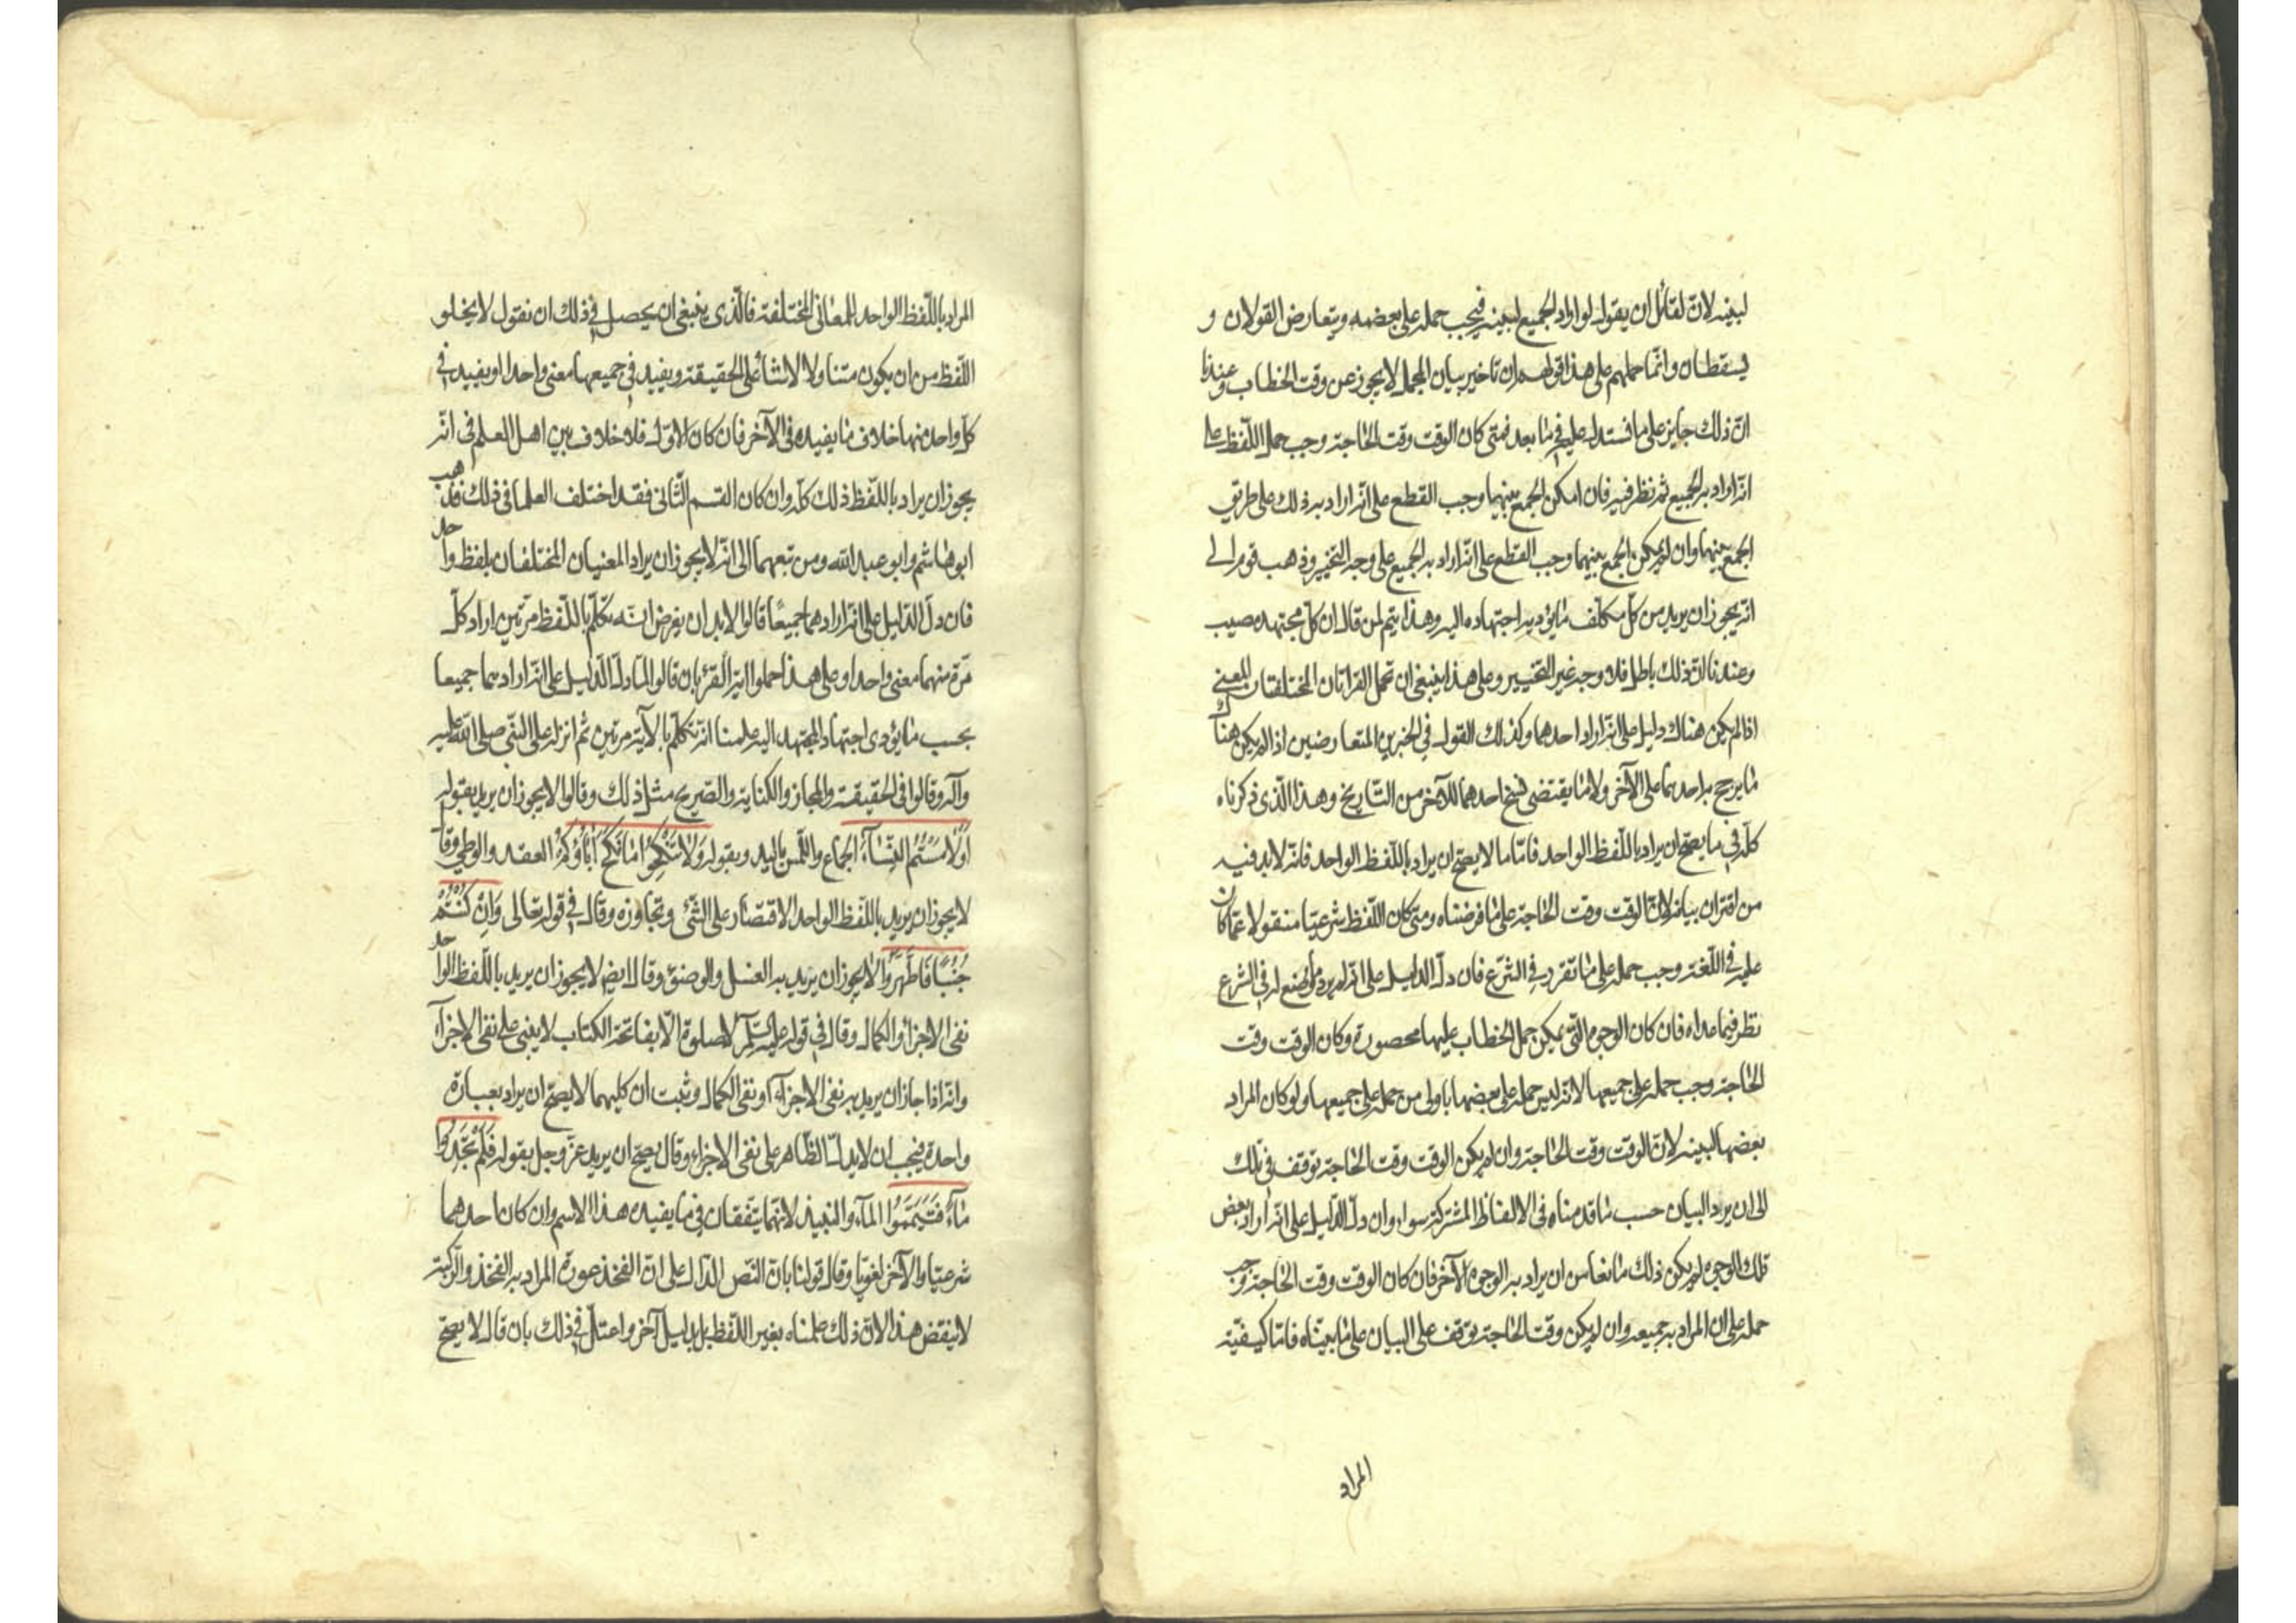 لبينه لانّ لقائل ان يقول لو اراد الجميع لبينه فيجب حمله على بعضه ويتعارض القولان و
يسقطان وانّما حملهم على هذا قولهم ان تاخير بيان المجمل لا يجوز عن وقت الخطاب وعندنا
انّ ذلك جايز على ما نستدل عليه فى ما بعد فمتى كان الوقت وقت الحاجة وجب حمل اللّفظ على
انّه اراد به الجميع ثم نظر فيه فان امكن الجمع بينهما وجب القطع على انّه اراد به ذلك على طريق
الجمع بينهما وان لم يمكن الجمع بينهما وجب القطع على انّه اراد به الجميع على وجه التخيير وذهب قوم الى
انّه يجوز ان يريد من كلّ مكلّف ما يؤديه اجتهاده اليه وهذا يتم لمن قال ان كلّ مجتهد مصيب
وعندنا انّ ذلك باطل فلا وجه غير التخيير وعلى هذا ينبغى ان تحمل القراءتان المختلفتان المعنى
اذا لم يكن هناك دليل على انّه اراد احدهما وكذلك القول فى الخبرين المتعارضين اذا لم يكن هناك
ما يرجح به احدهما على الآخر ولا ما يقتضى نسخ احدهما للآخر من التّاريخ وهذا الّذى ذكرناه
كلّه فى ما يصحّ ان يراد باللّفظ الواحد فامّا ما لا يصحّ ان يراد باللّفظ الواحد فانّه لابد فيه
من اقتران بيانه لانّ الوقت وقت الحاجة على ما فرضناه ومتى كان اللّفظ شرعيّا منقولا عمّا كان
عليه فى اللّغة وجب حمله على ما تقرر فى الشّرع فان دلّ الدليل على انّه لم يرد ما وضع له فى الشرع
نظر فيما عداه فان كان الوجوه الّتى يمكن حمل الخطاب عليها محصورة وكان الوقت وقت
الحاجة وجب حمله على جميعها لانّه ليس حمله على بعضها باولى من حمله على جميعها ولو كان المراد
بعضها لبينه لانّ الوقت وقت الحاجة وان لم يكن الوقت وقت الحاجة توقف فى ذلك
الى ان يرد البيان حسب ما قدمناه فى الالفاظ المشتركة سواء وان دلّ الدّليل على انّه اراد بعض
تلك الوجوه لم يكن ذلك مانعا من ان يراد به الوجوه الآخر فان كان الوقت وقت الحاجة وجب
حمله على ان المراد به جميعه وان لم يكن وقت الحاجة توقف على البيان على ما بيّناه فامّا كيفيّة
المراد
المراد باللّفظ الواحد للمعانى المختلفة فالّذى ينبغى ان يحصل فى ذلك ان نقول لا يخلو
اللّفظ من ان يكون متناولا لاشياء على الحقيقة ويفيد فى جميعها معنى واحدا او يفيد فى
كلّ واحد منها خلاف ما يفيده فى الآخر فان كان الاوّل فلا خلاف بين اهل العلم فى انّه
يجوز ان يراد باللّفظ ذلك كلّه وان كان القسم الثّانى فقد اختلف العلما فى ذلك فذهب
ابو هاشم وابو عبد الله ومن تبعهما الى انّه لا يجوز ان يراد المعنيان المختلفان بلفظ واحد
فان دلّ الدّليل على انّه ارادهما جميعًا قالوا لابد ان يفرض انّه تكلّم باللّفظ مرّتين اراد كلّ
مرّة منهما معنى واحدا وعلى هذا حملوا آية القرء بان قالوا لمّا دلّ الدّليل على انّه اراد بهما جميعا
بحسب ما يؤدى اجتهاد المجتهد اليه علمنا انّه تكلّم بالآية مرتين ثم انزله على النّبى صلى الله عليه
وآله وقالوا فى الحقيقة والمجاز والكناية والصّريح مثل ذلك وقالوا لا يجوز ان يريد بقوله
اَوْ لٰامَسْتُمُ النِّسٰاءَ الجماع واللّمس باليد وبقوله وَلٰا تَنْكِحُوا مٰا نَكَحَ اٰبٰاؤُكُمْ العقد والوطى وقال
لا يجوز ان يريد باللّفظ الواحد الاقتصار على الشّئ وتجاوزه وقال فى قوله تعالى وَاِنْ كُنْتُمْ
جُنُبًا فَاطَّهَّرُوا لا يجوز ان يريد به الغسل والوضوء وقال ايضا لا يجوز ان يريد باللّفظ الواحد
نفى الاجزاء والكمال وقال فى قوله عليه السّلام لا صلوة الّا بفاتحة الكتاب لا ينبى على نفى الاجزاء
وانّه اذا جاز ان يريد به نفى الاجزاء ونفى الكمال وثبت ان كليهما لا يصحّ ان يراد بعبارة
واحدة فيجب ان لا يدلّ الظّاهر على نفى الاجزاء وقال يصحّ ان يريد عزّ وجل بقوله فَلَمْ تَجِدُوا
مٰاءً فَتَيَمَّمُوا الماء والنبيذ لانهما يتفقان فى ما يفيده هذا الاسم وان كان احدهما
شرعيّا والآخر لغويّا وقال قولنا بانّ النّص الدّال على انّ الفخذ عورة المراد به الفخذ والرّكبة
لا ينقض هذا لانّ ذلك علمناه بغير اللّفظ بل بدليل آخر واعتلّ فى ذلك بان قال لا يصحّ